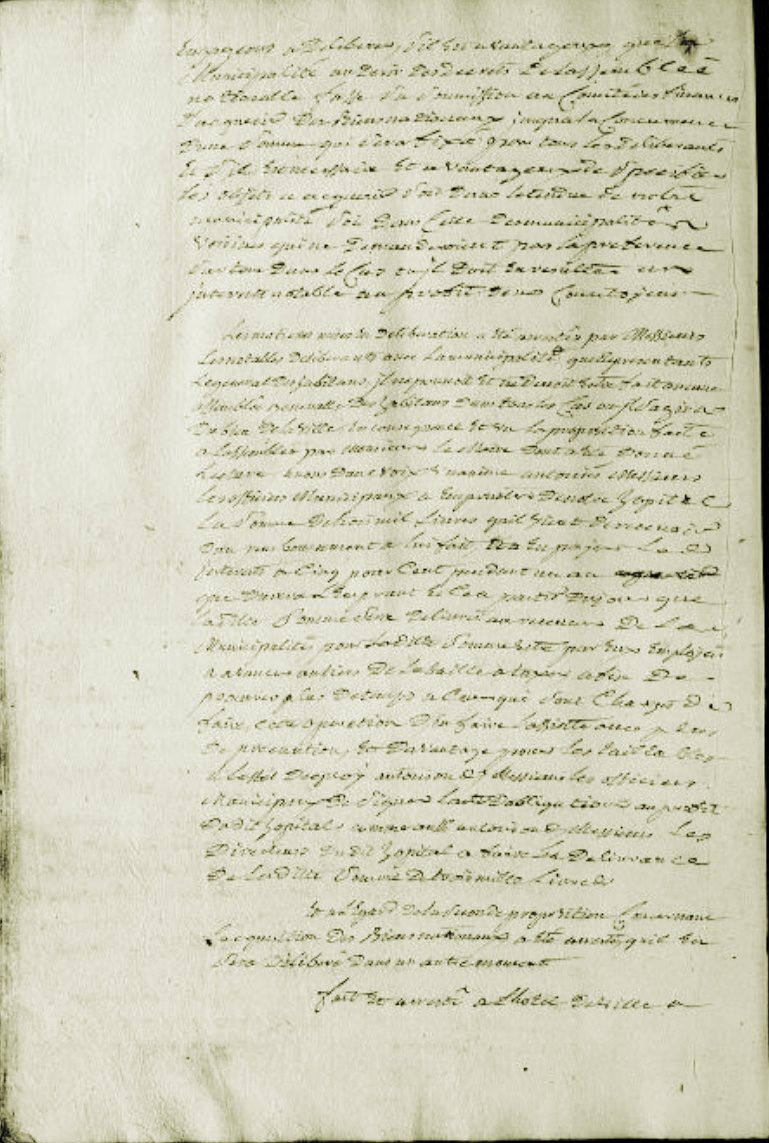 Engageons a Deliberer, s'il est avantageux que la
Municipalité au Desir des decrets De lassemblee
nationalle fasse sa soumission au Comité des finances
D'acquerir Des Biens nationaux jusqua la Concurrence
Dune somme qui sera fixée par tous les deliberants
Et s'il est necessaire Et avantageux de
les objets a acquerir soit Dans letendue De notre
municipalité soit Dans Celle Des municipalités
Voisines qui ne Demanderoient pas la preference
surtout Dans le Cas ou jl Doit En resulter un
jnterest notable au profit de nos Concitoyens
Les motions mises En Deliberation a été arreté par Messieurs
Les notables Deliberants avec La municipalité que representants
Le general Des habitans, jl ne pouvoit Et ne Devoit Estre fait aucune
assemblée Des habitans Dans tous les Cas ou jl sagira
Du bien De la Ville, En consequence Et vu la proposition faitte
a Lassemblée par Monsieur Le Maire Dont a été Donné
Lecture avons Dune voix unanime autorisé Messieurs
Les officiers Municipaux a Emprunter De notre hopital
La somme De trois mil Livres quil vient De recevoir
Dun rembourcement a lui fait, Et En payer Les
jnterests a Cinq pour Cent pendant un an
que Durera L'Emprunt Et Ce a partir Du jour que
laditte somme sera Delivrée au receveur De La
Municipalité pour Laditte somme Estre par Eux Employée
De
a Ceux qui sont Chargé De
faire, cette operation D'en faire
De precaution, Et Davantage pour les
a Leffet Dequoy autorisons Messieurs les officiers
Municipaux De signer Lacte Dobligation au profit
Dudit hopital, comme aussi autorisons Messieurs Les
Directeurs Dudit hopital a faire La Delivrance
De Laditte somme De trois mille Livres
Et a L'egard De la seconde proposition Concernant
Lacquisition Des Biens nationaux a été arreté quil En
sera Deliberé Dans un autre moment
fait Et arresté a Lhotel De Ville a